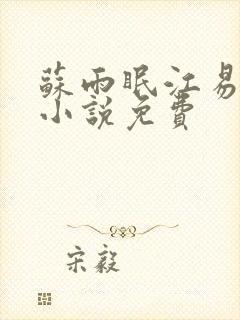 蘇雨眠江易
小說免費
宋毅